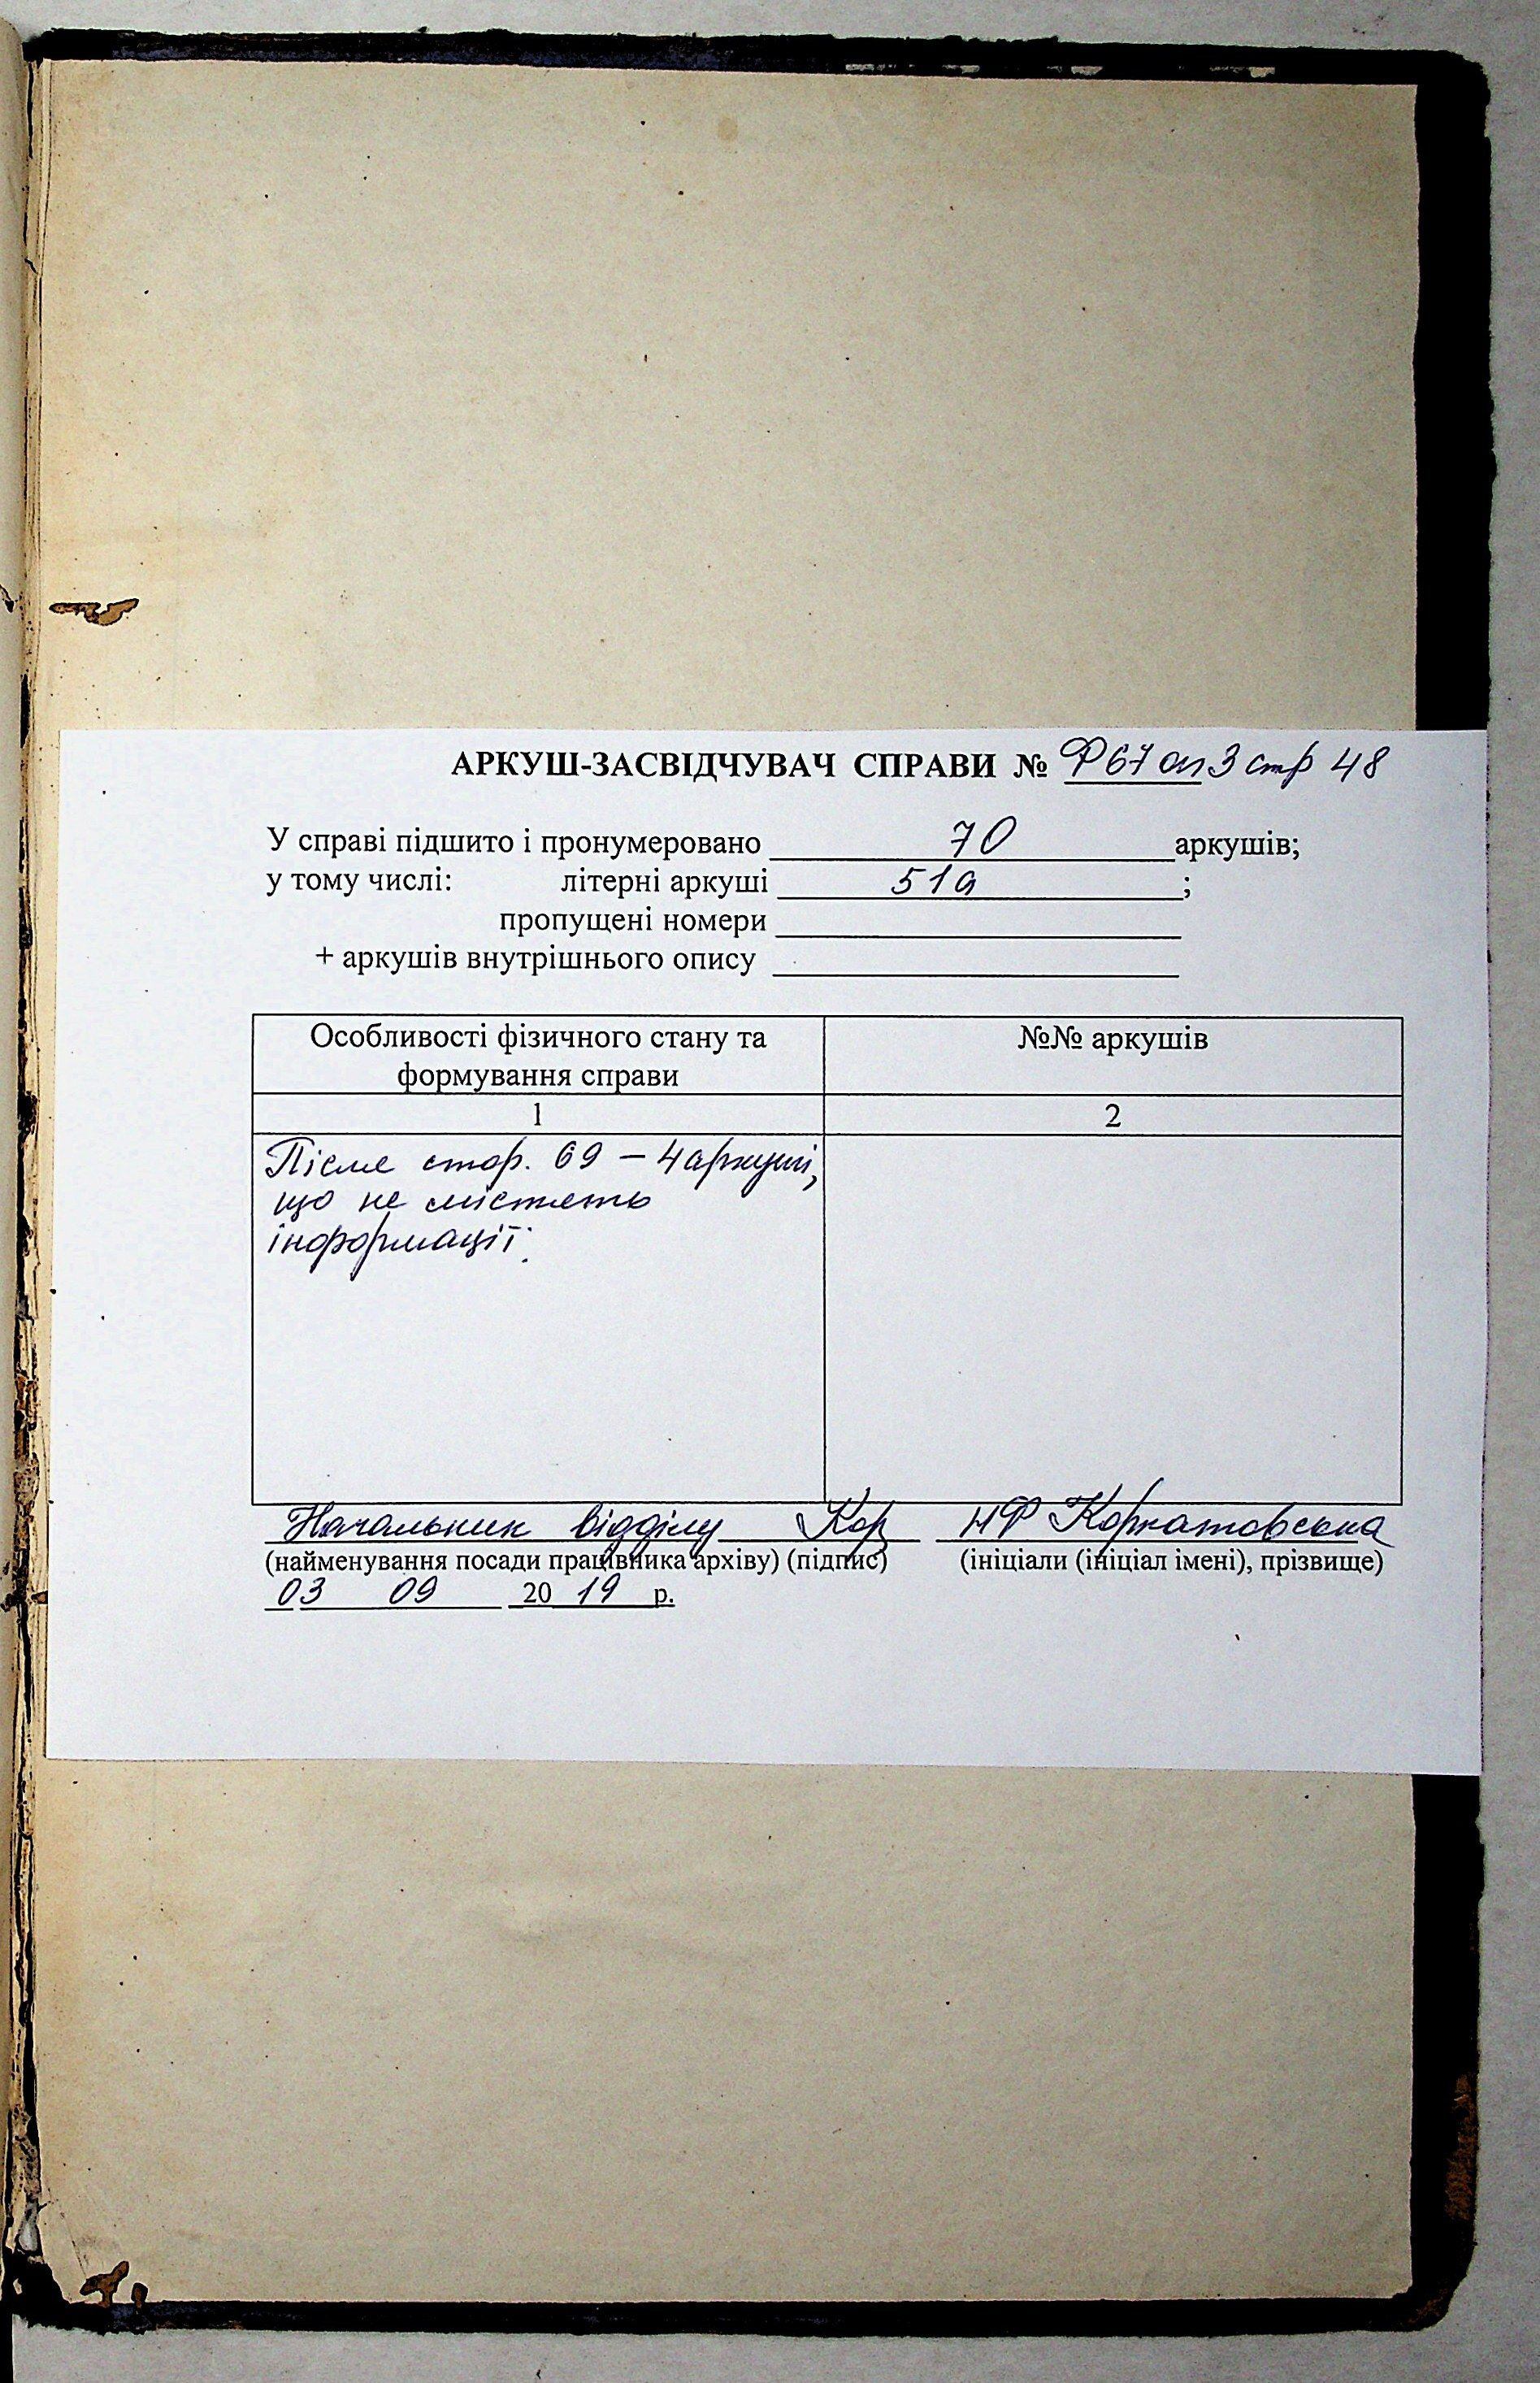 АРКУШ-ЗАСВІДЧУВАЧ СПРАВИ № Ф67 оп3 спр 48
У справі підшито і пронумеровано 70 аркушів;
у тому числі: літерні аркуші 51а ;
пропущені номери
+ аркушів внутрішнього опису
Особливості фізичного стану та формування справи
№№ аркушів
1 2
Після стор. 69 – 4 аркуші,
що не містять
інформації.
Начальник відділу Кор НФ Корнатовська
(найменування посади працівника архіву) (підпис) (ініціали (ініціал імені), прізвище)
03 09 2019 р.